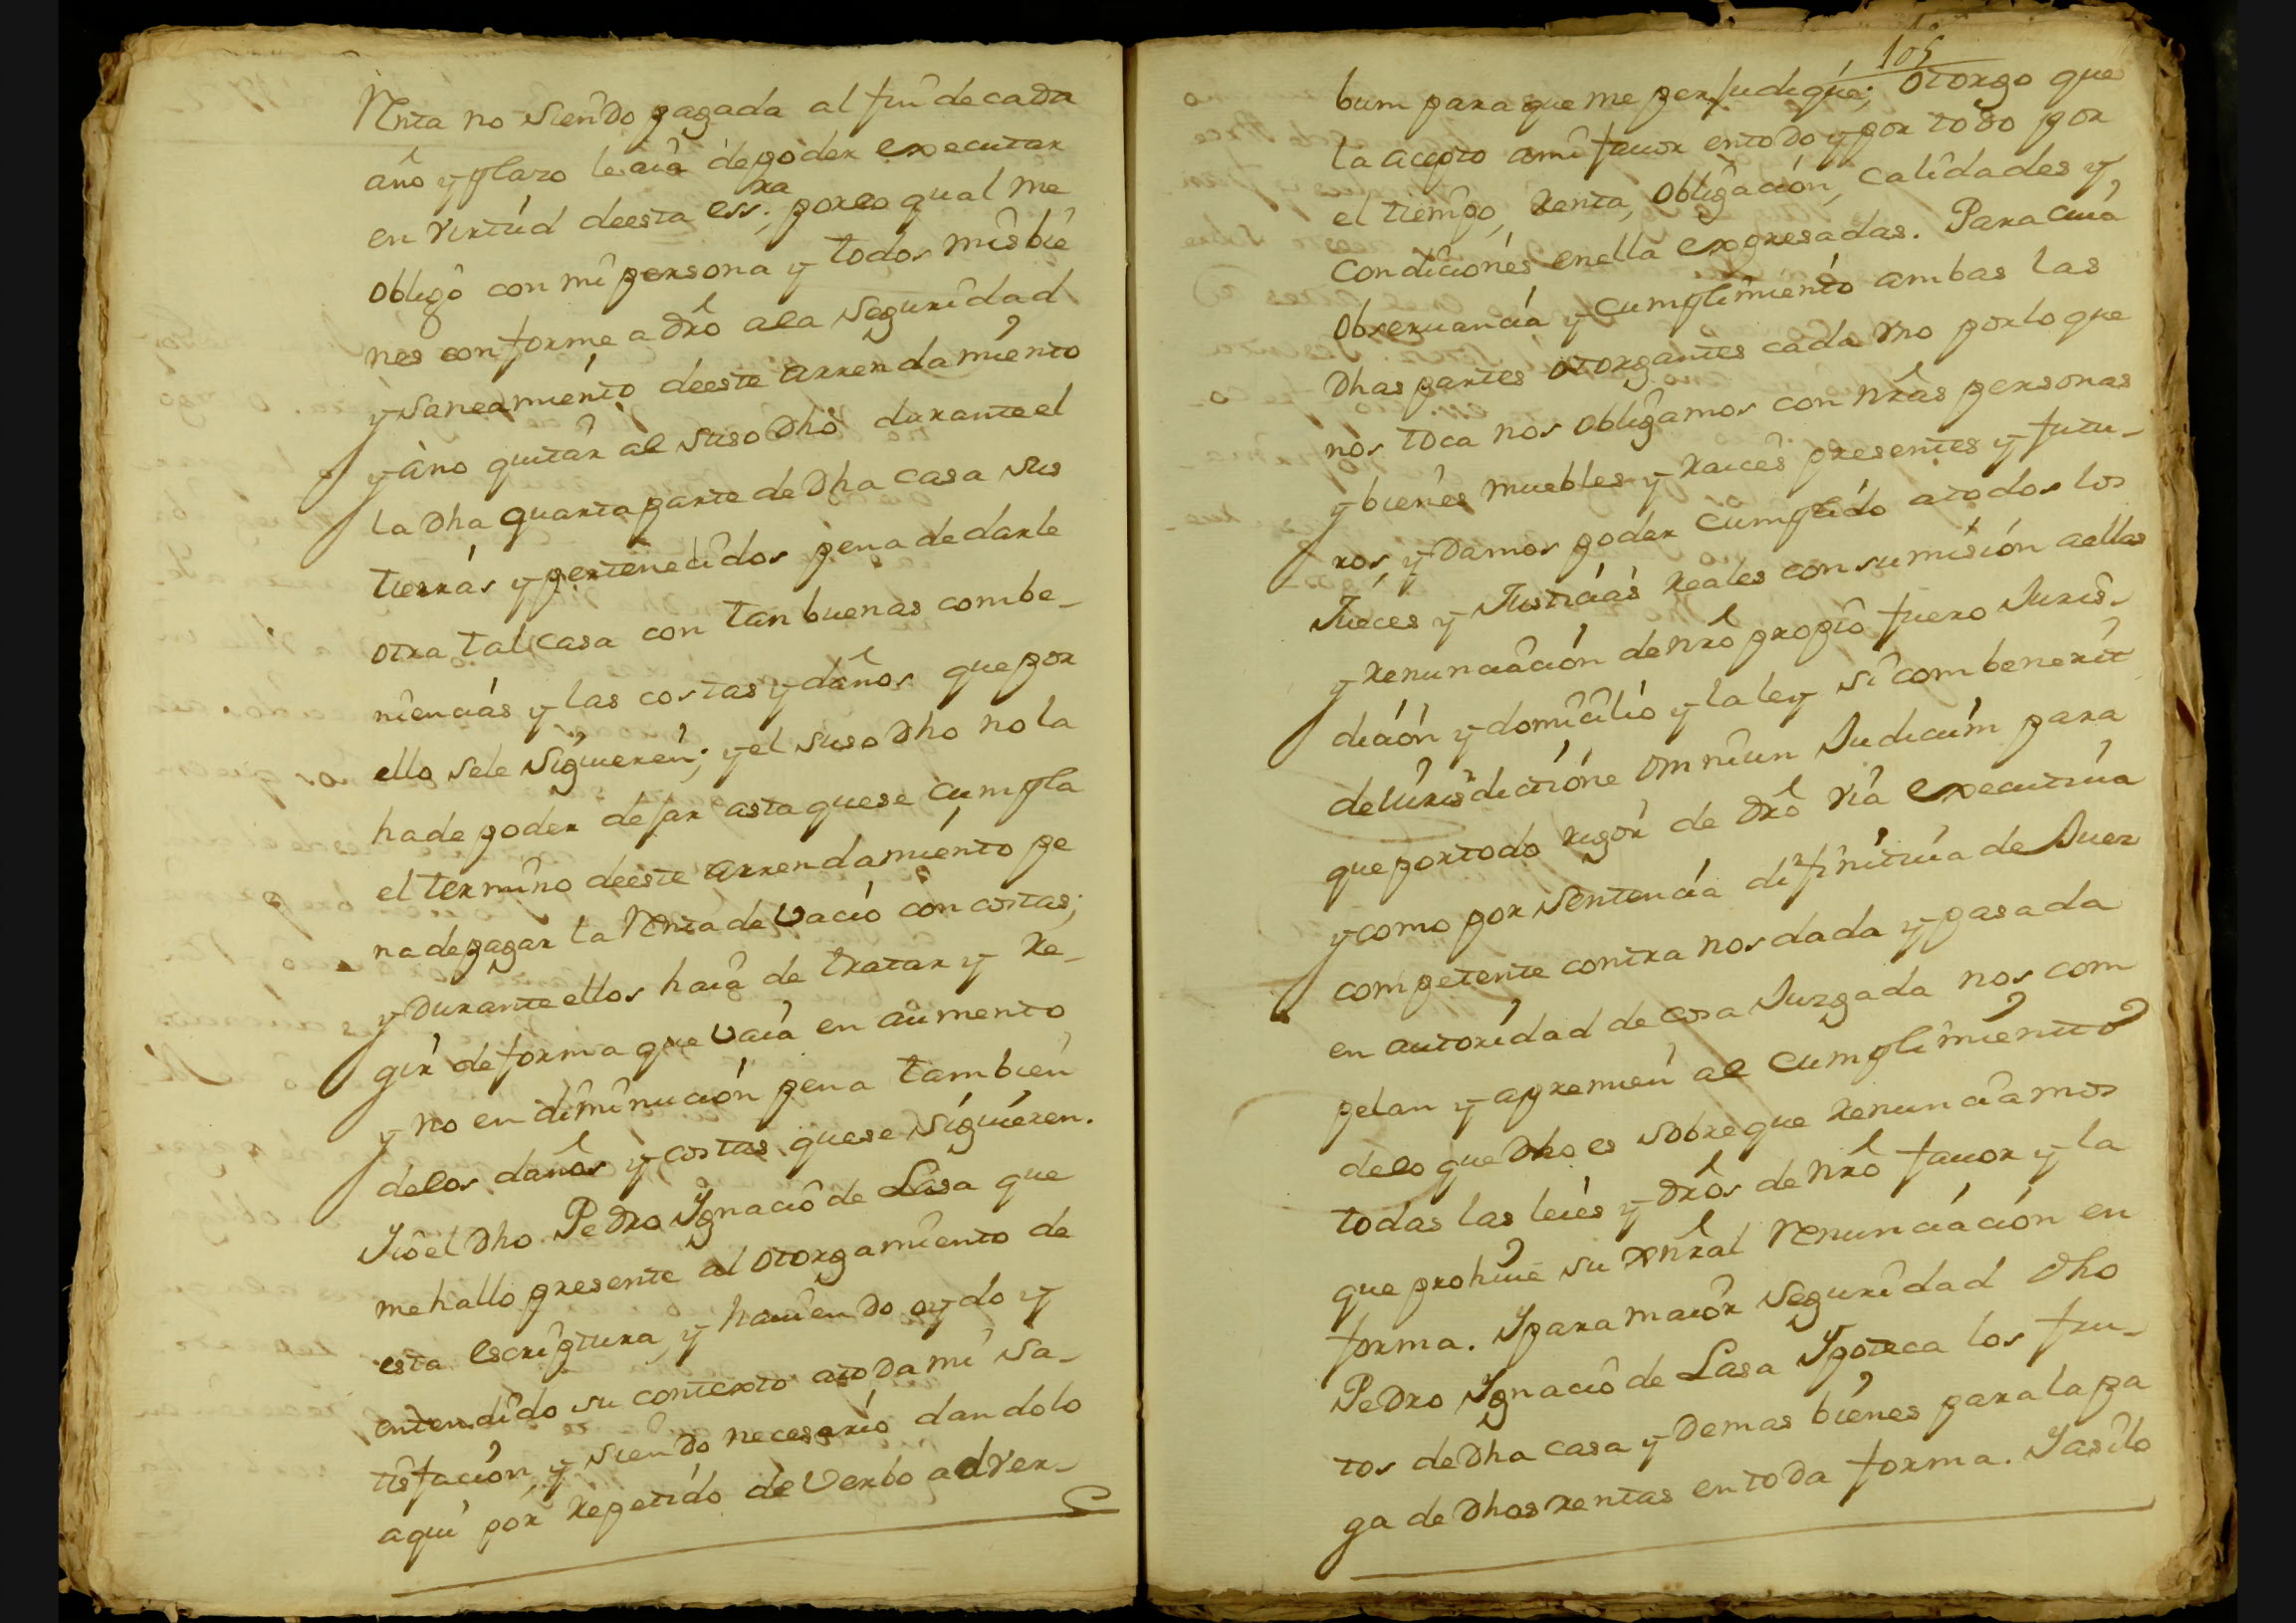 Renta no siendo pagada al fin de cada
año y plazo le aia de poder executar
en virtud de esta essra; por lo qual me
obligo con mi persona y todos mis bie
nes conforme a dro a la seguridad
y saneamiento de este arrendamiento
y a no quitar al suso dho durante el
la dha quarta parte de dha casa sus
tierras y pertenecidos pena de darle
otra tal casa con tan buenas combe-
niencias y las costas y daños que por
ello se le siguieren; y el suso dho no la
ha de poder dejar asta que se cumpla
el termino de este arrendamiento pe
na de pagar la Renta de vacio con costas;
y durante ellos haia de tratar y re-
gir de forma que vaia en aumento
y no en diminucion pena tambien
de los daños y costas que se siguieren.
Yo el dho Pedro Ygnacio de Lasa que
me hallo presente al otorgamiento de
esta escriptura, y hauiendo oydo y
entendido su contexto a toda mi sa-
tisfacion, y siendo necesario dandolo
aqui por repetido de verbo ad ver-
105
bum para que me perjudique; otorgo que
la acepto a mi fauor en todo y por todo por
el tiempo, renta, obligacion, calidades y
condiciones en ella expresadas. Para cuia
obseruancia y cumplimiento ambas las
dhas partes otorgantes cada vno por lo que
nos toca nos obligamos con nras personas
y bienes muebles y raices presentes y futu-
ros, y damos poder cumplido a todos los
Jueces y Justicias reales con sumision a ellas
y renunciacion de nro propio fuero Juris-
dicion y domicilio y la ley si combenerit
de Jurisdictione omniun Judicum para
que por todo rigor de dro via executiua
y como por sentencia difinitiua de Juez
competente contra nos dada y pasada
en autoridad de cosa Juzgada nos com
pelan y apremien al cumplimiento
de lo que dho es sobre que renunciamos
todas las leies y dros de nro fauor y la
que prohiue su xnral renunciacion en
forma. Y para maior seguridad dho
Pedro Ygnacio de Lasa Ypoteca los fru-
tos de dha casa y demas bienes para la pa
ga de dhas rentas en toda forma. Y asi lo